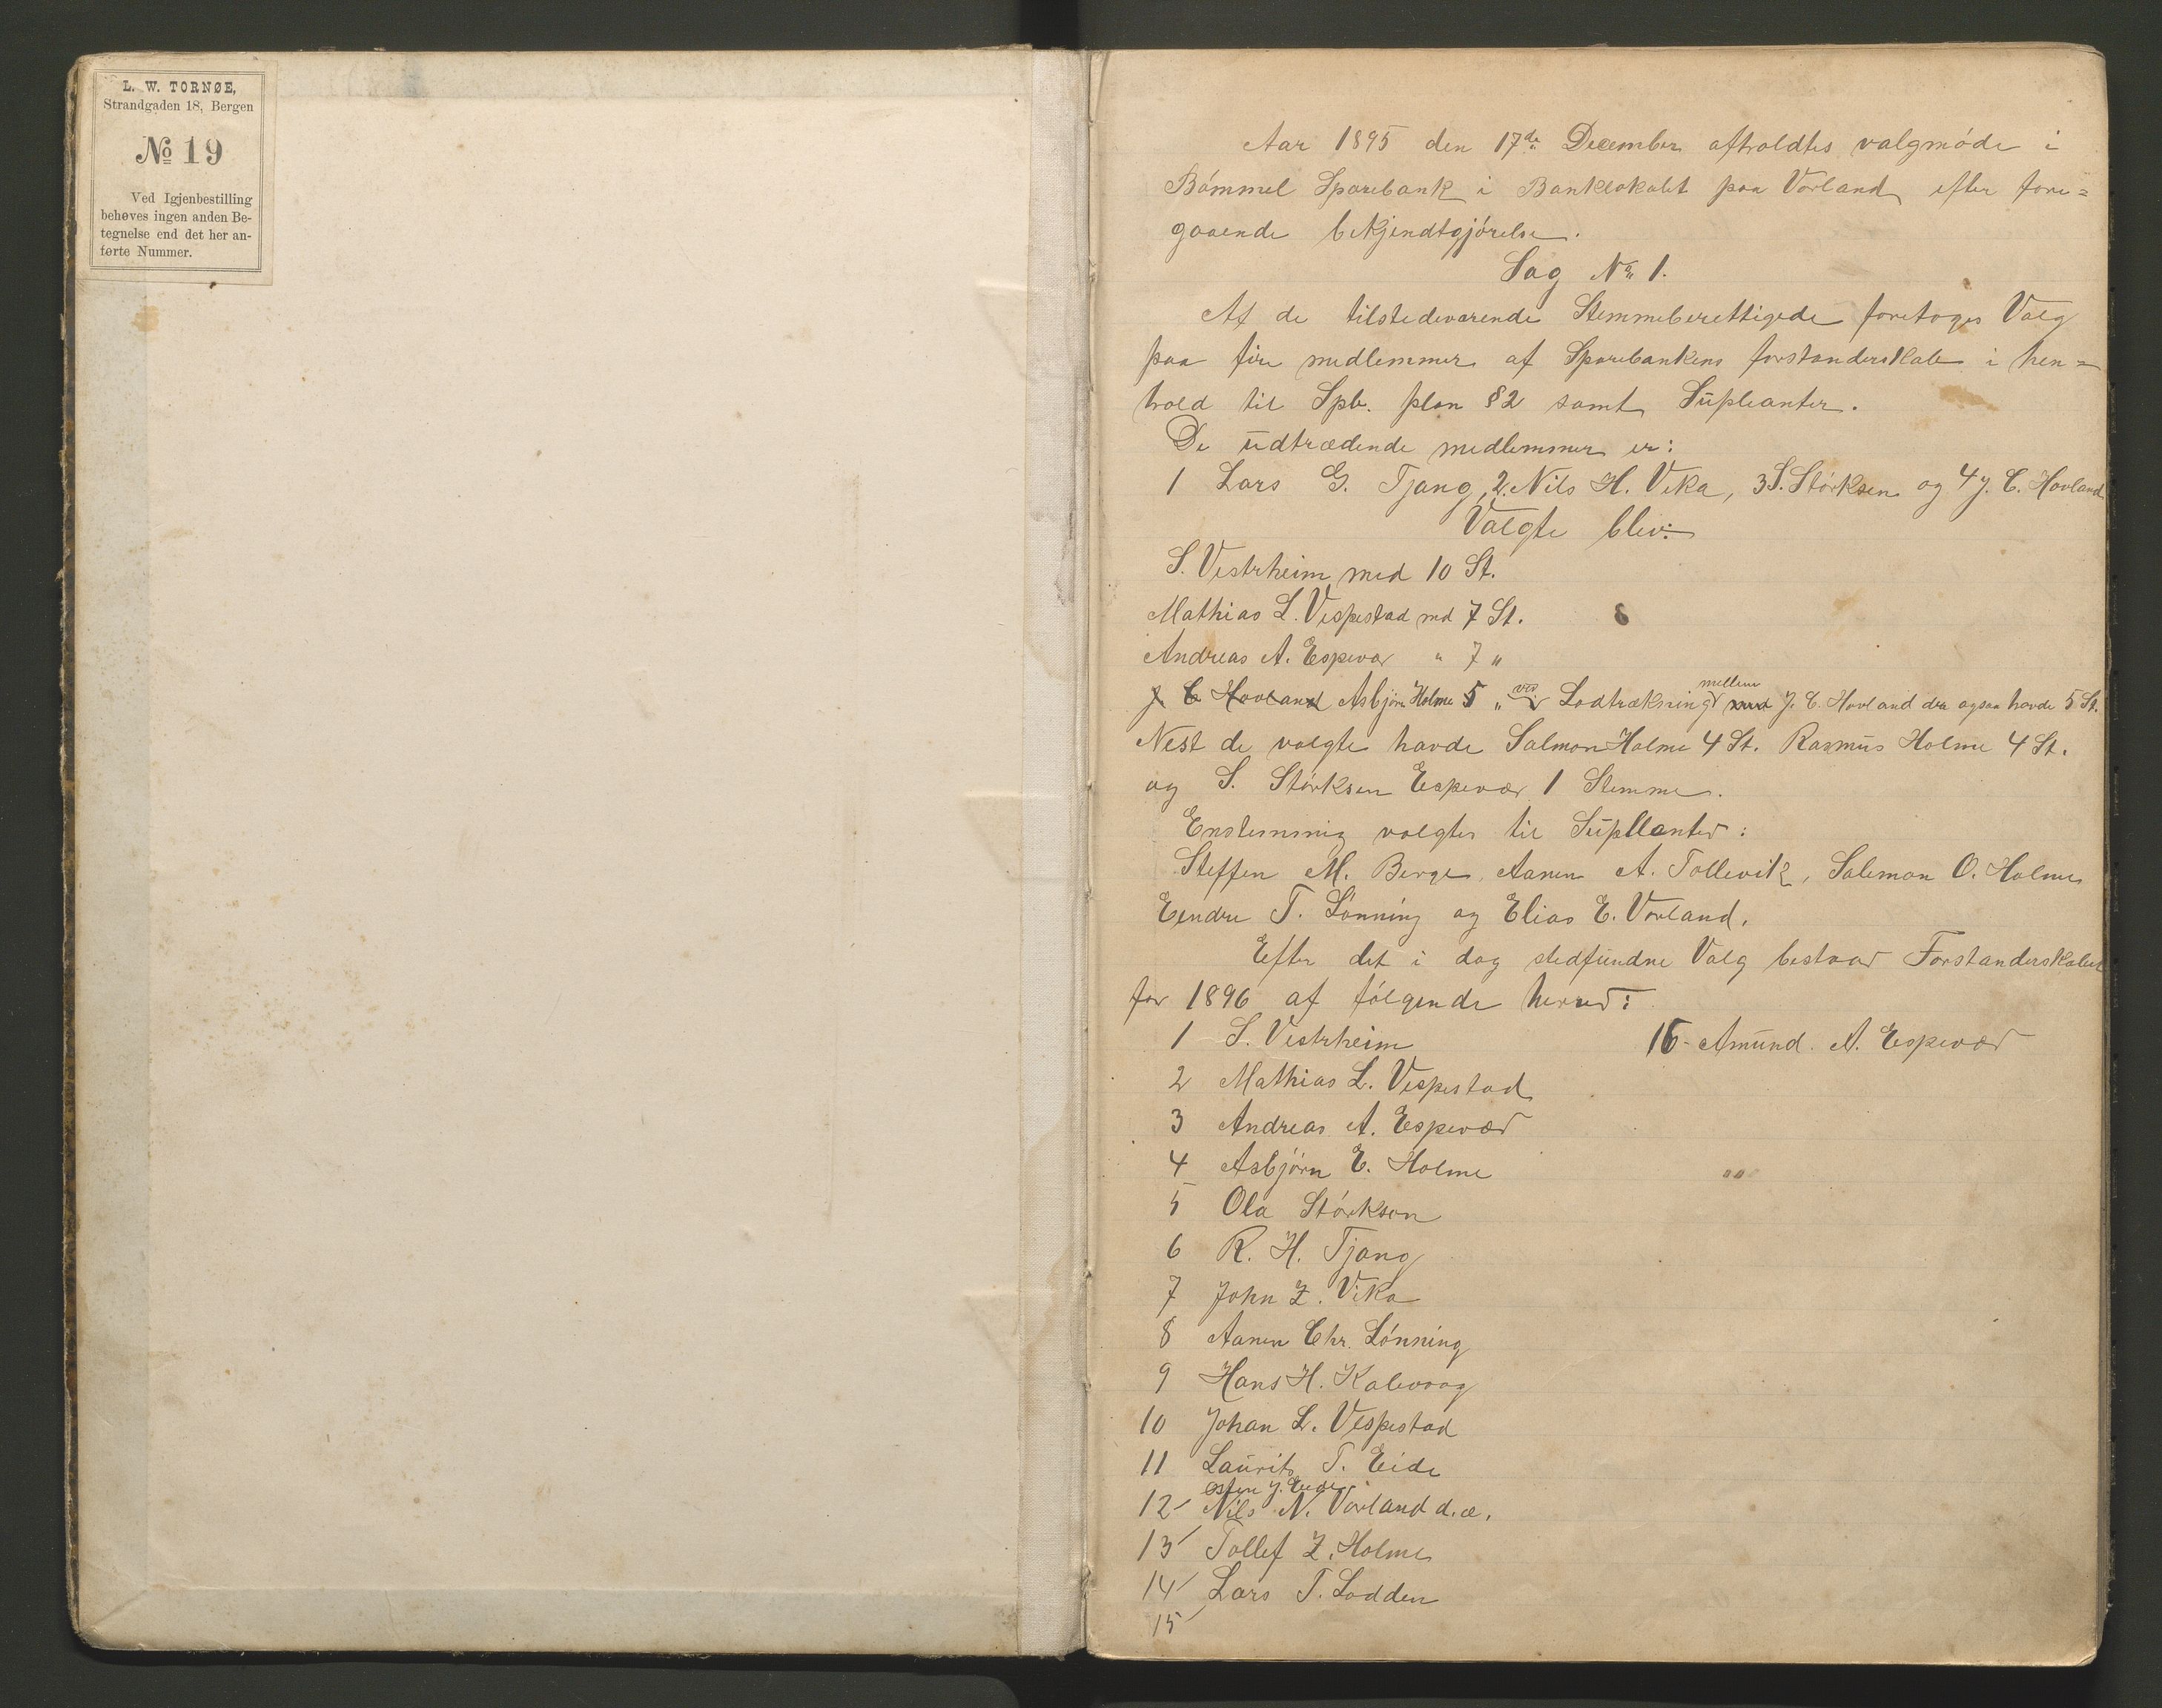 L. W. TORNØE,
Strandgaden 18, Bergen
No 19
Ved Igjenbestilling
behøves ingen anden Be-
tegnelse end det her an-
førte Nummer.
Aar 1895 den 17de December afholdtes valgmøde i
Bømmel Sparebank i Banklokalet paa Vorland efter fore=
gaaende bekjendtgjørelse.
Sag No 1.
Af de tilstedeværende Stemmeberettigede foretoges Valg
paa fire medlemmer af Sparebankens forstanderskab i hen=
hold til Spb. plan §2 samt Supleanter.
De udtrædende medlemmer er:
1 Lars G. Tjang, 2. Nils H. Vika, 3 S. Størksen og 4 J. C. Hovland
Valgte blev:
S. Vestrheim med 10 St.
Mathias L. Vespestad med 7 St.
Andreas A. Espevær " 7 "
J. C. Hovland Asbjørn Holme 5 " ved Lodtrækning mellem J. C. Hovland der ogsaa havde 5 St.
Nest de valgte havde Salmon Holme 4 St. Rasmus Holme 4 St.
og S. Størksen Espevær 1 Stemme.
Enstemmig valgtes til Supllanter:
Steffen M. Berge, Aanen A. Tollevik, Salemon O. Holme
Eendre T. Lønning og Elias E. Vorland.
Efter det i dag stedfundne Valg bestaar Forstanderskabet
for 1896 af følgende herrer:
1 S. Vestrheim
16 - Amund. A. Espevær
2 Mathias L. Vespestad
3 Andreas A. Espevær
4 Asbjørn E. Holme
5 Ola Størkson
6 R. H. Tjang
7 John Z. Vika
8 Aanen Chr. Lønning
9 Hans H. Kalevaag
10 Johan L. Vespestad
11 Laurits T. Eide
12 Nils N. Vorland d.æ.
13 Tollef Z. Holme
14 Lars T. Lodden
15